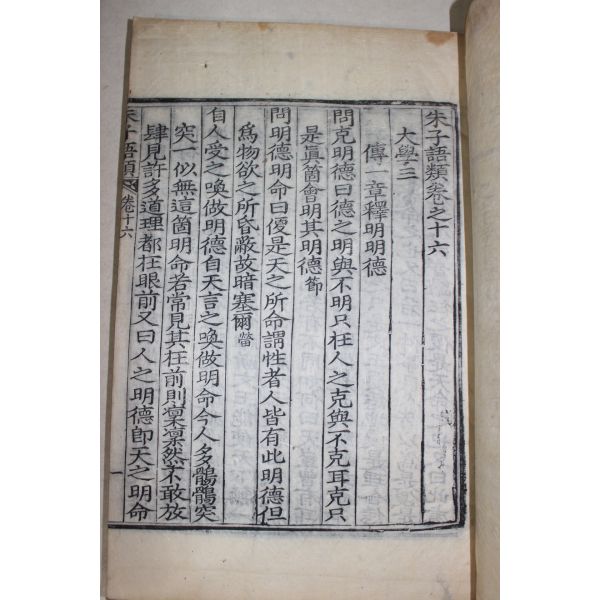 朱子語類卷之十六
大學三
傳一章釋明明德
問克明德曰德之明與不明只在人之克與不克耳克只
是眞箇會明其明德節
問明德明命曰便是天之所命謂性者人皆有此明德但
爲物欲之所昏蔽故暗塞爾㽦
自人受之喚做明德自天言之喚做明命今人多鶻鶻突
突一似無這箇明命若常見其在前則凜凜然不敢放
肆見許多道理都在眼前又曰人之明德卽天之明命
朱子語類 卷十六
一